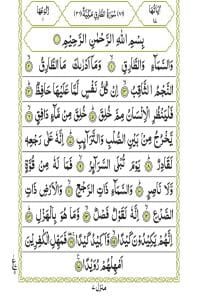 (٨٦) سُوْرَةُ الطَّارِقِ مَكِّيَّةٌ (٣٦)
بِسْمِ اللّٰهِ الرَّحْمٰنِ الرَّحِيْمِ
وَالسَّمَآءِ وَالطَّارِقِ وَمَآ اَدْرٰىكَ مَا الطَّارِقُ
النَّجْمُ الثَّاقِبُ اِنْ كُلُّ نَفْسٍ لَّمَّا عَلَيْهَا حَافِظٌ
فَلْيَنْظُرِ الْاِنْسَانُ مِمَّ خُلِقَ خُلِقَ مِنْ مَّآءٍ دَافِقٍ
يَّخْرُجُ مِنْ بَيْنِ الصُّلْبِ وَالتَّرَآئِبِ اِنَّهٗ عَلٰى رَجْعِهٖ
لَقَادِرٌ يَوْمَ تُبْلَى السَّرَآئِرُ فَمَا لَهٗ مِنْ قُوَّةٍ
وَّلَا نَاصِرٍ وَالسَّمَآءِ ذَاتِ الرَّجْعِ وَالْاَرْضِ ذَاتِ
الصَّدْعِ اِنَّهٗ لَقَوْلٌ فَصْلٌ وَّمَا هُوَ بِالْهَزْلِ
اِنَّهُمْ يَكِيْدُوْنَ كَيْدًا وَّاَكِيْدُ كَيْدًا فَمَهِّلِ الْكٰفِرِيْنَ
اَمْهِلْهُمْ رُوَيْدًا
منزل ٧